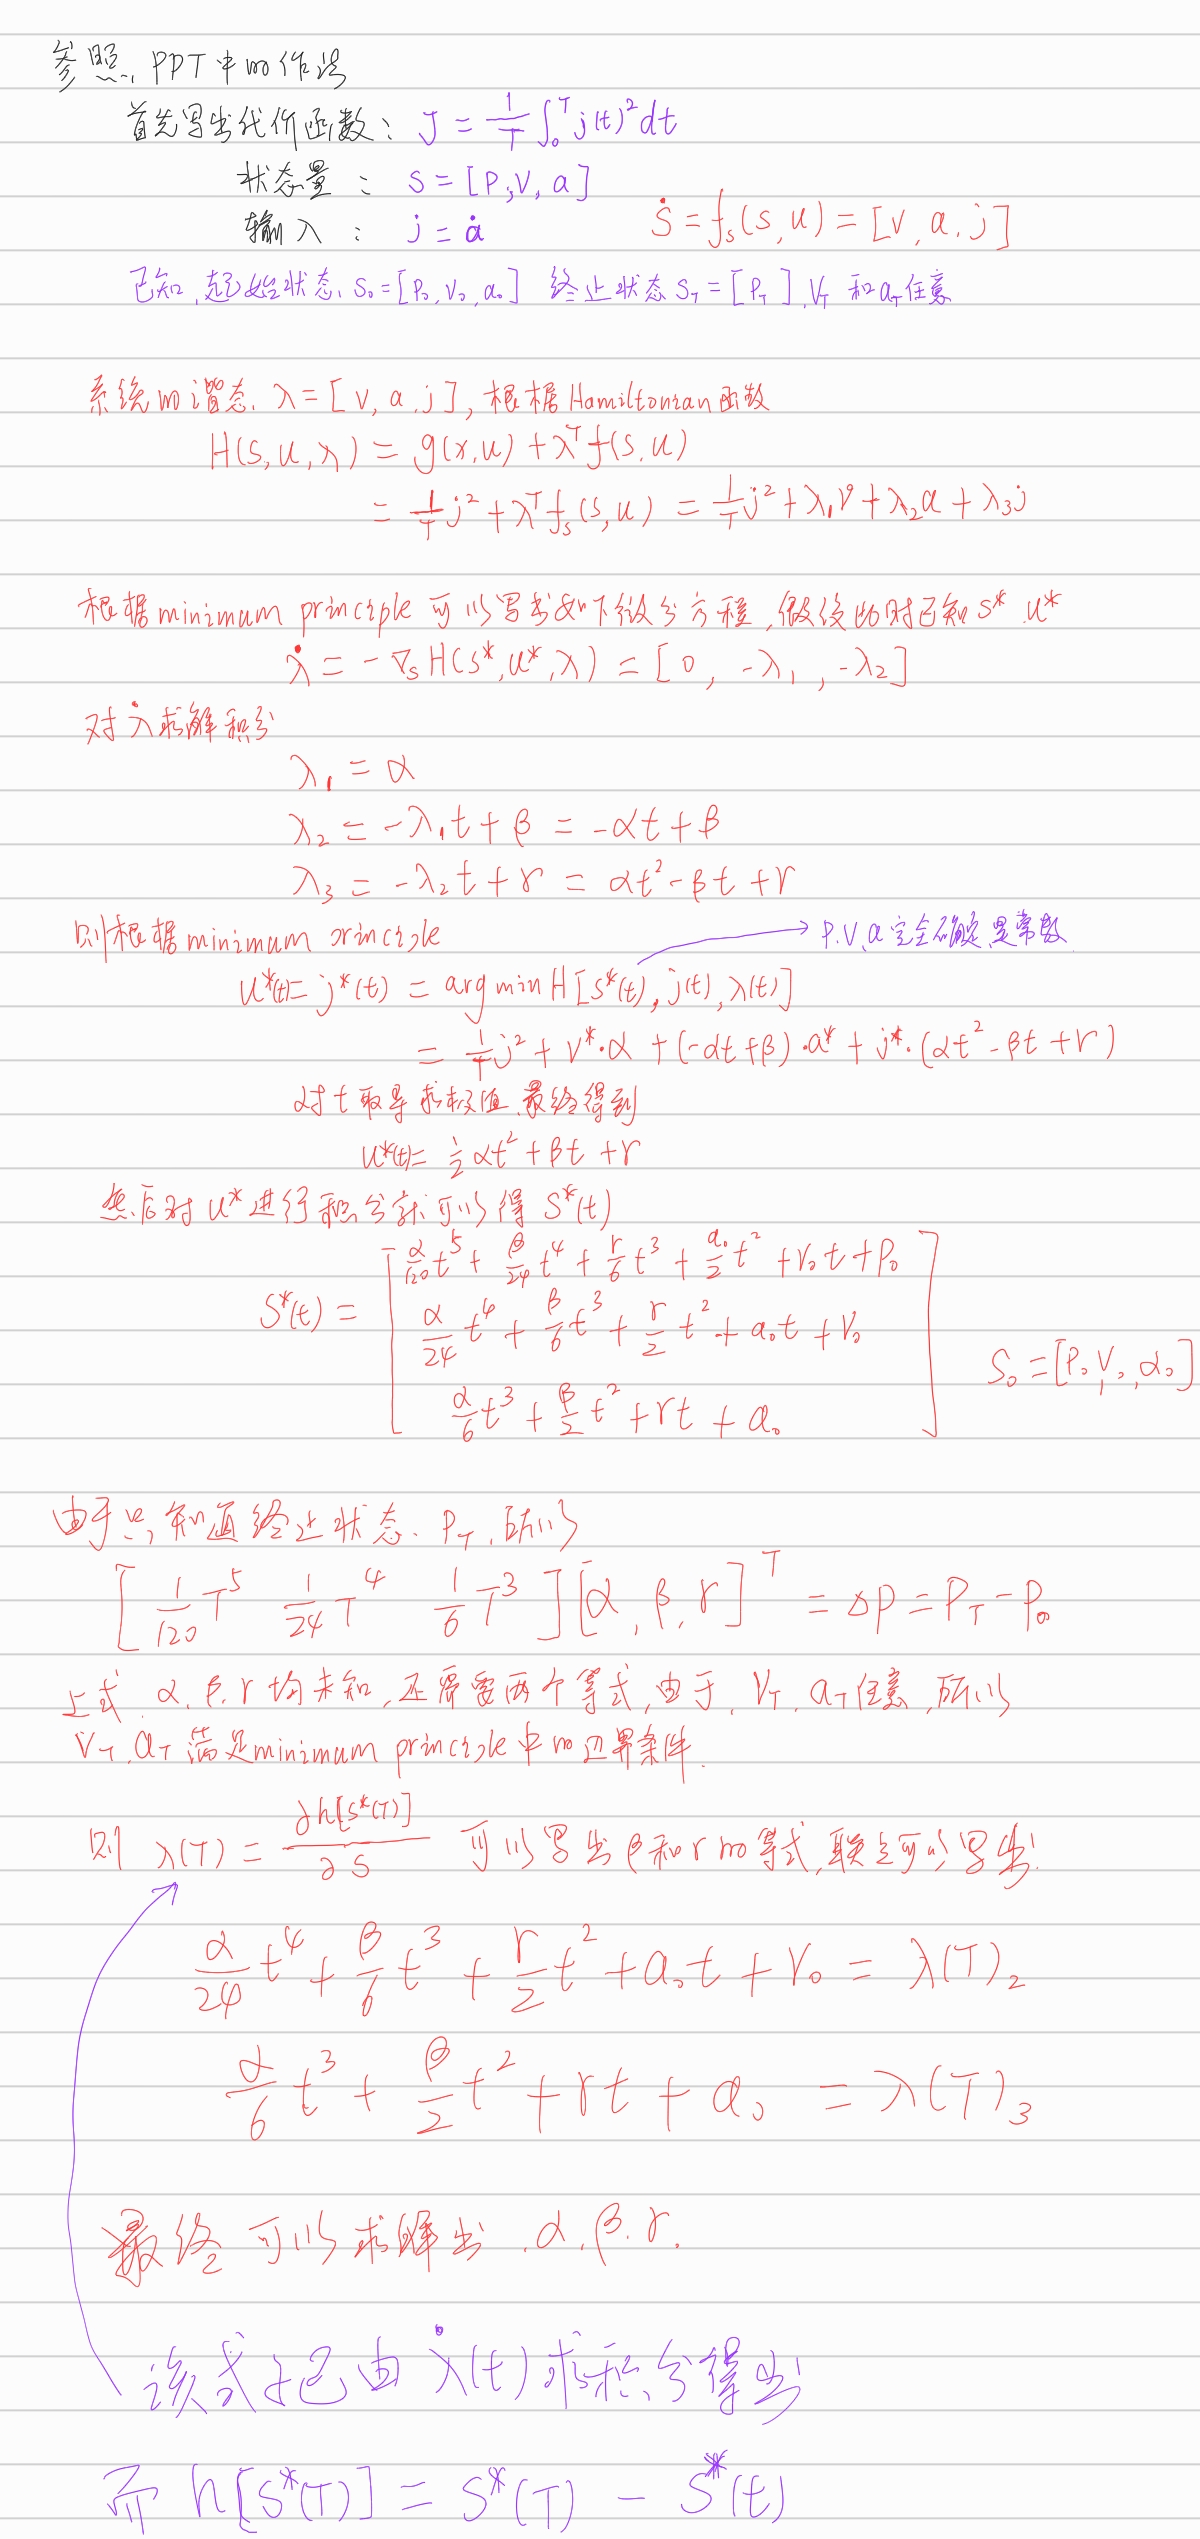 参照 PPT中的作法
首先写出代价函数: J = 1/T ∫₀ᵀ j(t)² dt
状态量: S = [P, V, a]
输入: j = ȧ    Ṡ = fₛ(s, u) = [v, a, j]
已知 起始状态 S₀ = [P₀, V₀, a₀] 终止状态 S_T = [P_T], V_T 和 a_T 任意
系统的谐态 λ = [v, a, j], 根据Hamiltonian函数
H(S, u, λ) = g(x, u) + λᵀf(s, u)
= 1/T j² + λᵀfₛ(s, u) = 1/T j² + λ₁v + λ₂a + λ₃j
根据minimum principle 可以写出如下微分方程, 做后 此时已知 s* u*
λ̇ = -∇ₛH(s*, u*, λ) = [0, -λ₁, -λ₂]
对 λ̇ 求解积分
λ₁ = α
λ₂ = -λ₁t + β = -αt + β
λ₃ = -λ₂t + r = αt² - βt + r
则根据minimum principle → P, V, a 完全确定 是常数
u*(t) = j*(t) = arg min H[s*(t), j(t), λ(t)]
= 1/T j² + V*·α + (-αt+β)·a* + j*·(αt² - βt + r)
对 t 取导 求极值, 最终得到
u*(t) = 1/2 αt² + βt + r
然后对 u* 进行积分就可以得 S*(t)
S*(t) = [ α/120 t⁵ + β/24 t⁴ + r/6 t³ + a₀/2 t² + V₀t + P₀
α/24 t⁴ + β/6 t³ + r/2 t² + a₀t + V₀
α/6 t³ + β/2 t² + rt + a₀ ]    S₀ = [P₀, V₀, α₀]
由于只知道终止状态 P_T, 所以
[1/120 T⁵  1/24 T⁴  1/6 T³][α, β, r]ᵀ = ΔP = P_T - P₀
上式 α, β, r 均未知, 还需要两个等式, 由于 V_T, a_T 任意, 所以
V_T, a_T 满足minimum principle 中的边界条件.
则 λ(T) = ∂h[s*(T)] / ∂s 可以写出 β 和 r 的等式, 联立可以写出
α/24 t⁴ + β/6 t³ + r/2 t² + a₀t + V₀ = λ(T)₂
α/6 t³ + β/2 t² + rt + a₀ = λ(T)₃
最终 可以求解出 α, β, r.
该式子已由 λ̇(t) 求积分得出
而 h[S*(T)] = S*(T) - S*(t)